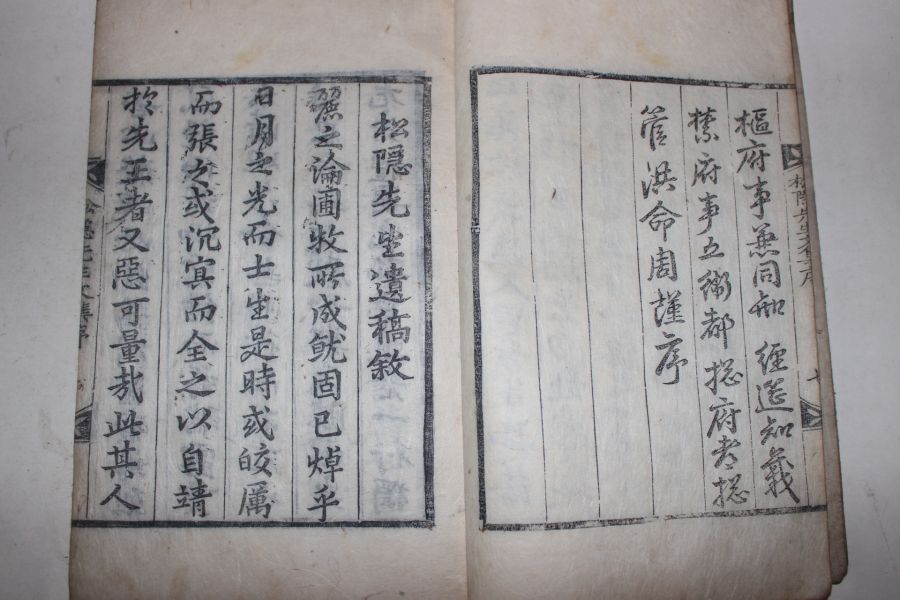 樞府事兼同知 經筵知義
禁府事五衛都摠府都摠
管洪命周謹序
松隱先生遺稿敘
麗之論圃牧所成就固已焯乎
日月之光而士生是時或皎厲
而張之或沉冥而全之以自靖
於先王者又惡可量哉此其人